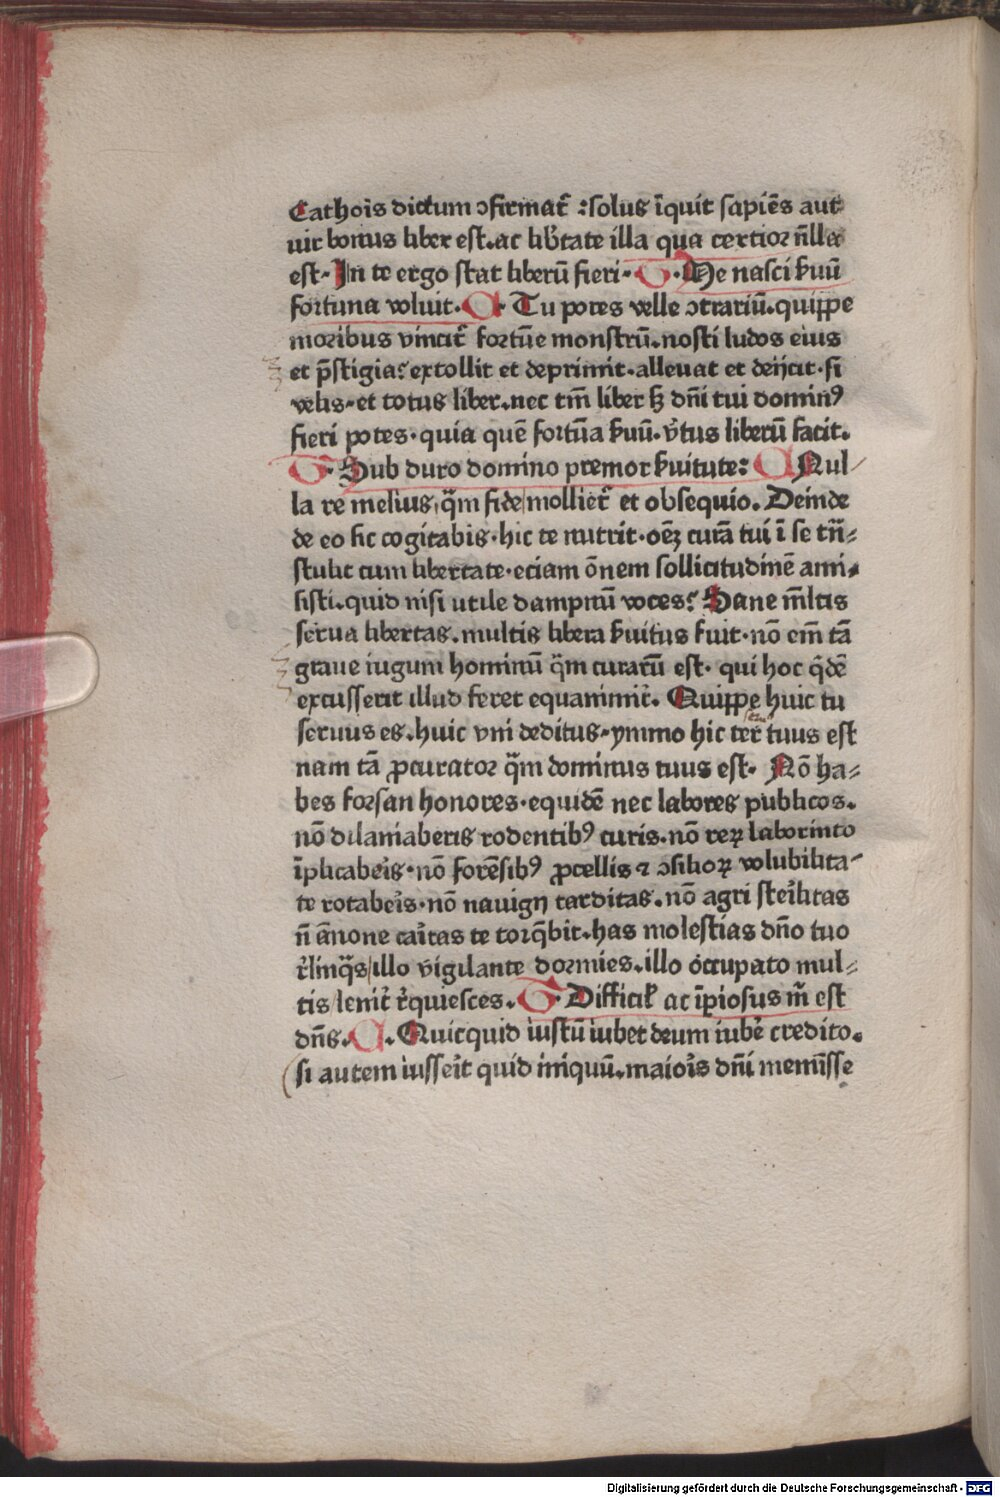 Cathoīs dictum ɔfirmat᷑ : solus ī̄quit sapiēs aut
uir bonus liber est. ac lib̾tate illa qua certior n̄lla
est. In te ergo stat liberū fieri. T. Me nasci ẜuū
fortuna voluit. A. Tu potes velle ɔtrariū. quippe
moribus vincit᷑ fortūe monstrū. nosti ludos eius
et p̄stigia: extollit et deprimit. alleuat et deijcit. si
velis. et totus liber. nec tm̄ liber sꝫ dn̄i tui dominꝰ
fieri potes. quia quē fortūa ẜuū. v̾tus liberū facit.
T. Sub duro domino premor ẜuitute: A Nul/
la re melius, q̄m fide/ molliet᷑ et obsequio. Deinde
de eo sic cogitabis. hic te nutrit. oēꝫ curā tui ī se tn̄=
stulit cum libertate. eciam ōnem sollicitudinē ami=
sisti. quid nisi utile dampnū voces: Sane m̄ltis
serua libertas. multis libera ẜuitus fuit. nō em̄ tā
graue iugum hominū q̄m curarū est. qui hoc q̄dē
excusserit illud feret equanimit᷑. Quippe huic tu
seruus es. huic vni deditus. ymmo hic ter᷑ tuus est
nam tā ꝓcurator q̄m dominus tuus est. Nō ha=
bes forsan honores. equidē nec labores publicos.
nō dilaniaberis rodentibꝰ curis. nō reꝝ laborinto
īplicabēis. nō forēsibꝰ ꝓcellis ⁊ ɔsilioꝝ volubilita=
te rotabēis. nō nauigij tarditas. nō agri stēilitas
n̄ ānone cāitas te torq̄bit. has molestias dn̄o tuo
r̾linq̄s/ illo vigilante dormies. illo occupato mul=
tis/ lenit᷑ r̾quiesces. T. Difficil̾ ac īpiosus m̄ est
dn̄s. A. Quicquid iustū iubet deum iub̾e credito.
si autem iussēit quid iniquū. maiōis dn̄i memīsse
Digitalisierung gefördert durch die Deutsche Forschungsgemeinschaft - DFG